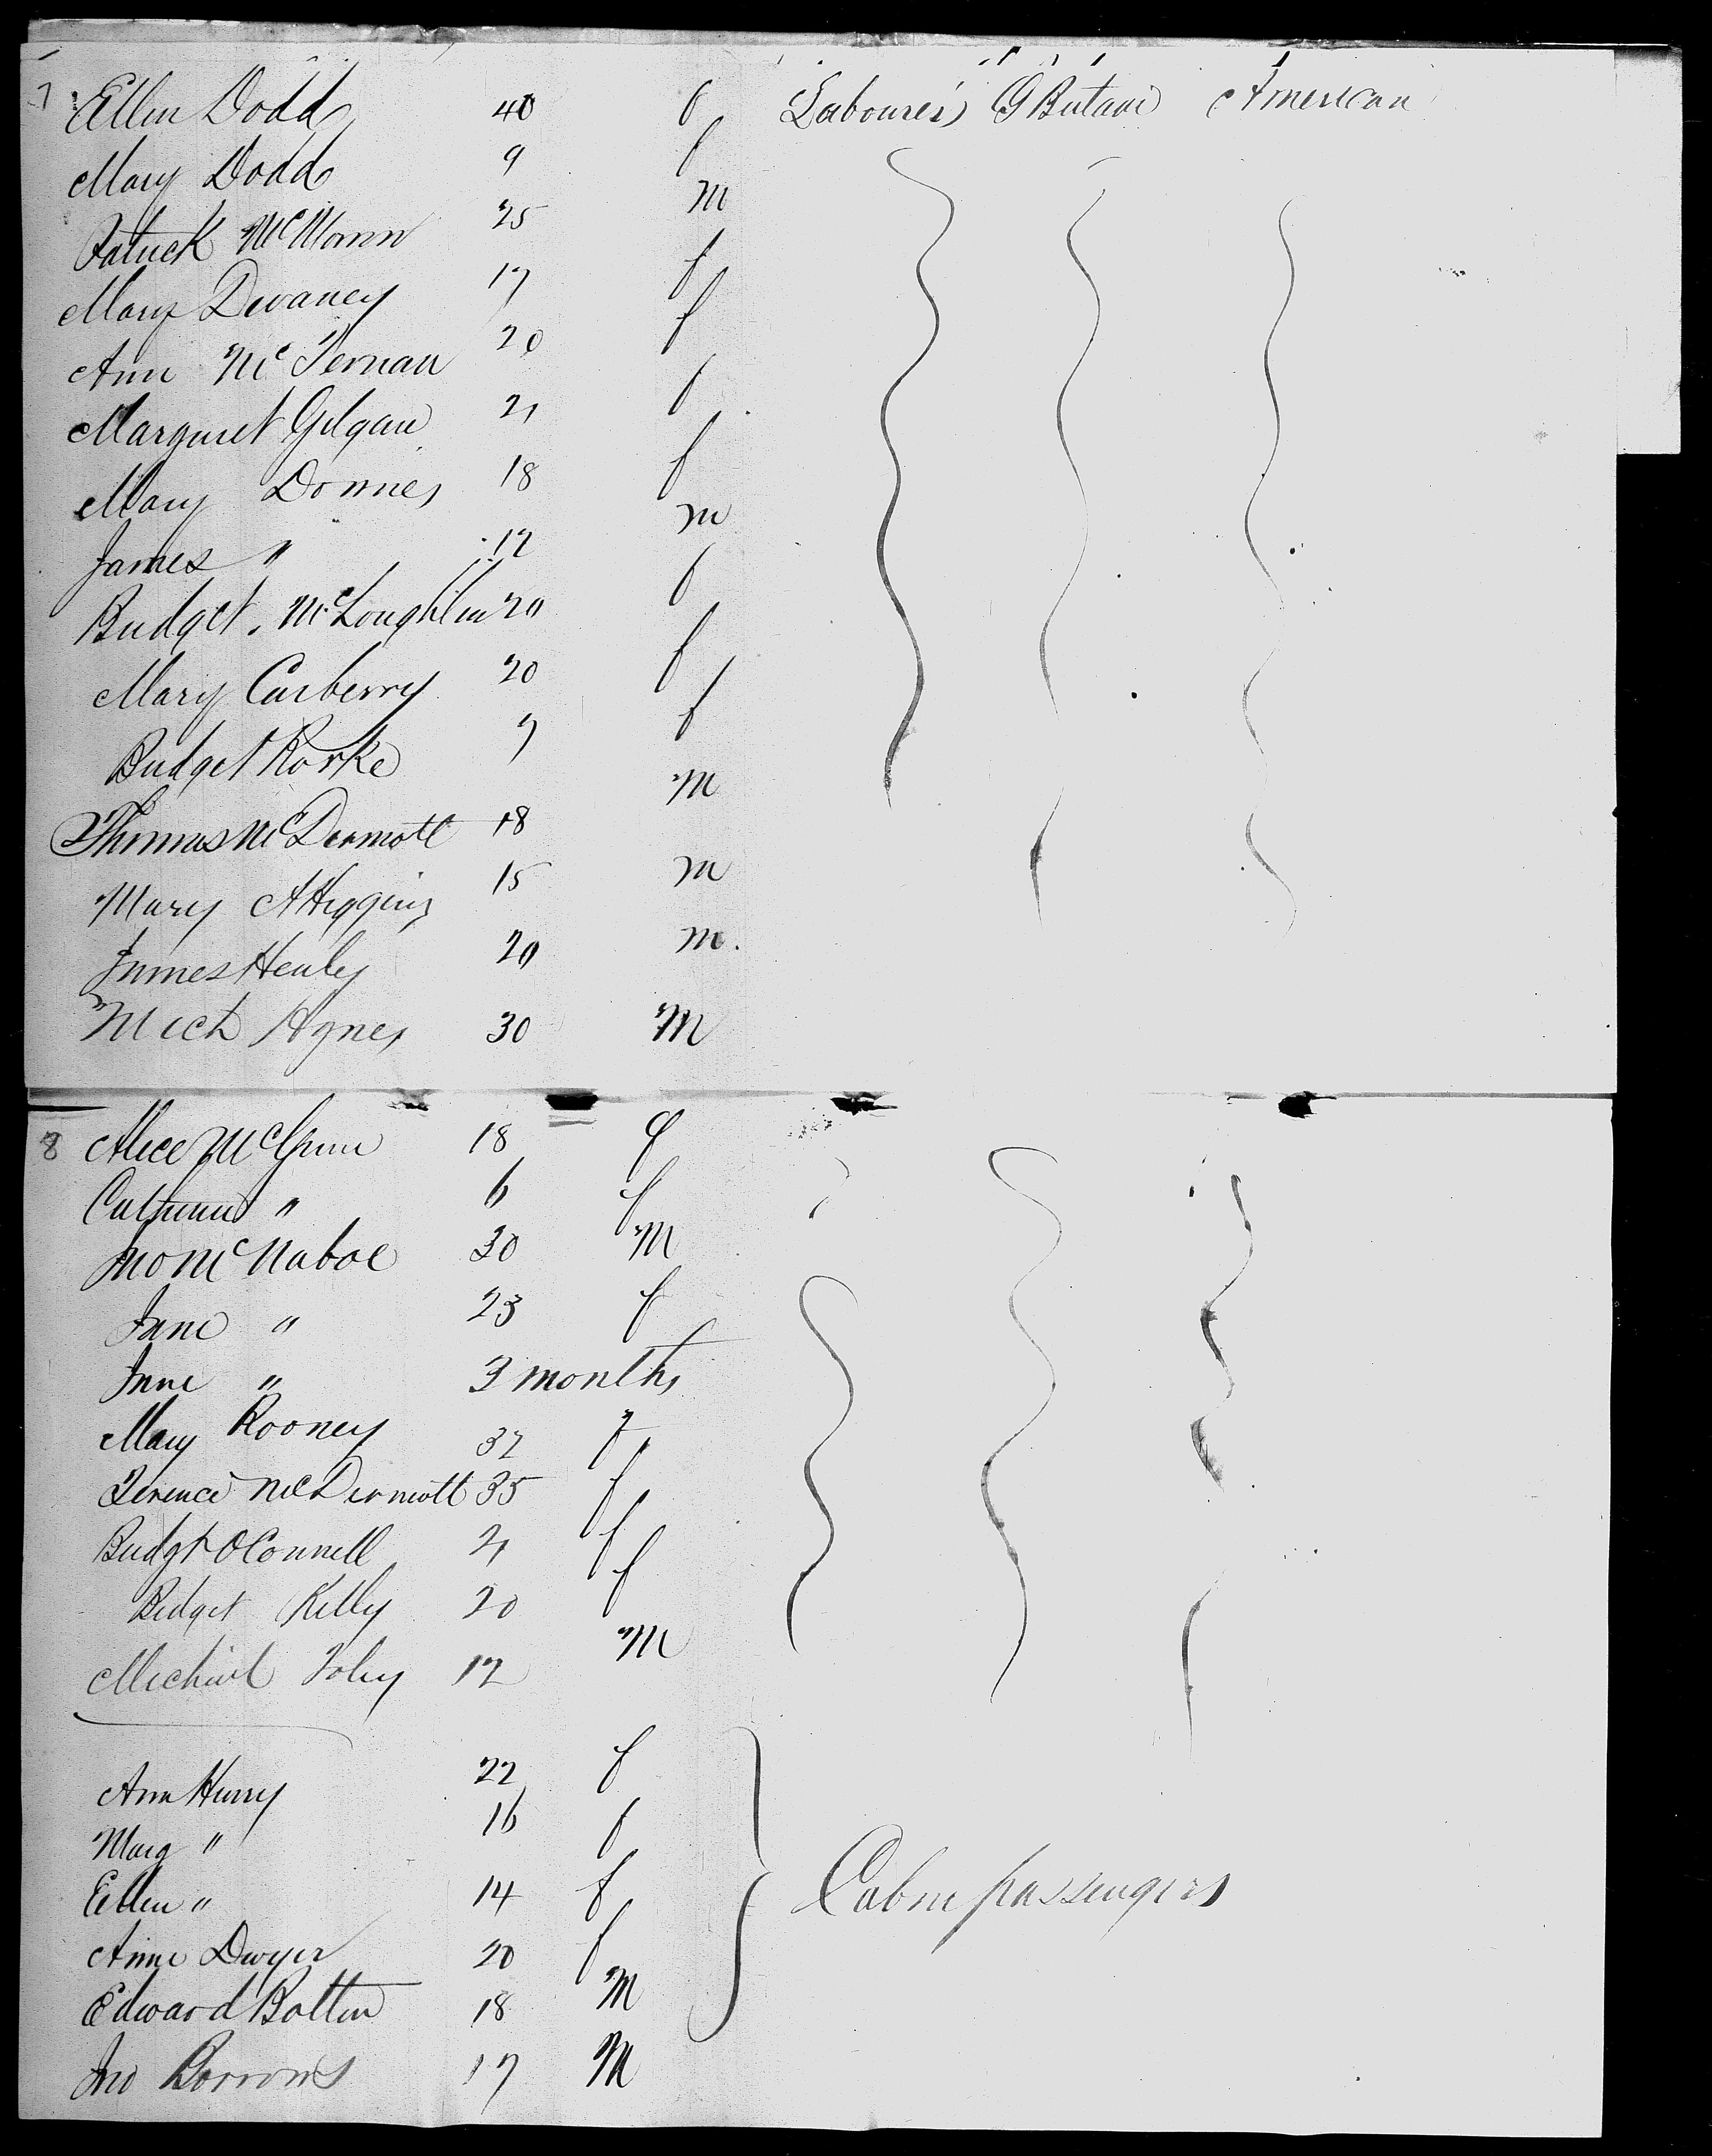 7 Ellen Dodd 40 f Labourers G Britain American
Mary Dodd 9 f
Patrick McMann 25 m
Mary Devaney 17 f
Ann McTernan 20 f
Margaret Gilgan 21 f
Mary Donnes 18 f
James " 12 m
Bridget McLoughlin 20 f
Mary Carberry 20 f
Bridget Rorke 7 f
Thomas McDermott 18 M
Mary A Higgins 15 m
James Healy 20 m.
Mich Agnes 30 M
8 Alice McGinn 18 f
Catherine " 6 f
Jno McNaboe 30 M
Jane " 23 f
Jane " 3 months
Mary Rooney 32 f
Terence McDermott 35 f
Bridgt O Connell 21 f
Bridget Kelly 20 f
Michael Foley 12 M
Ann Hurry 22 f
Marg " 16 f
Ellen " 14 f
Cabin passengers
Anne Dwyer 20 f
Edward Bolten 18 M
Jno Borrows 17 M